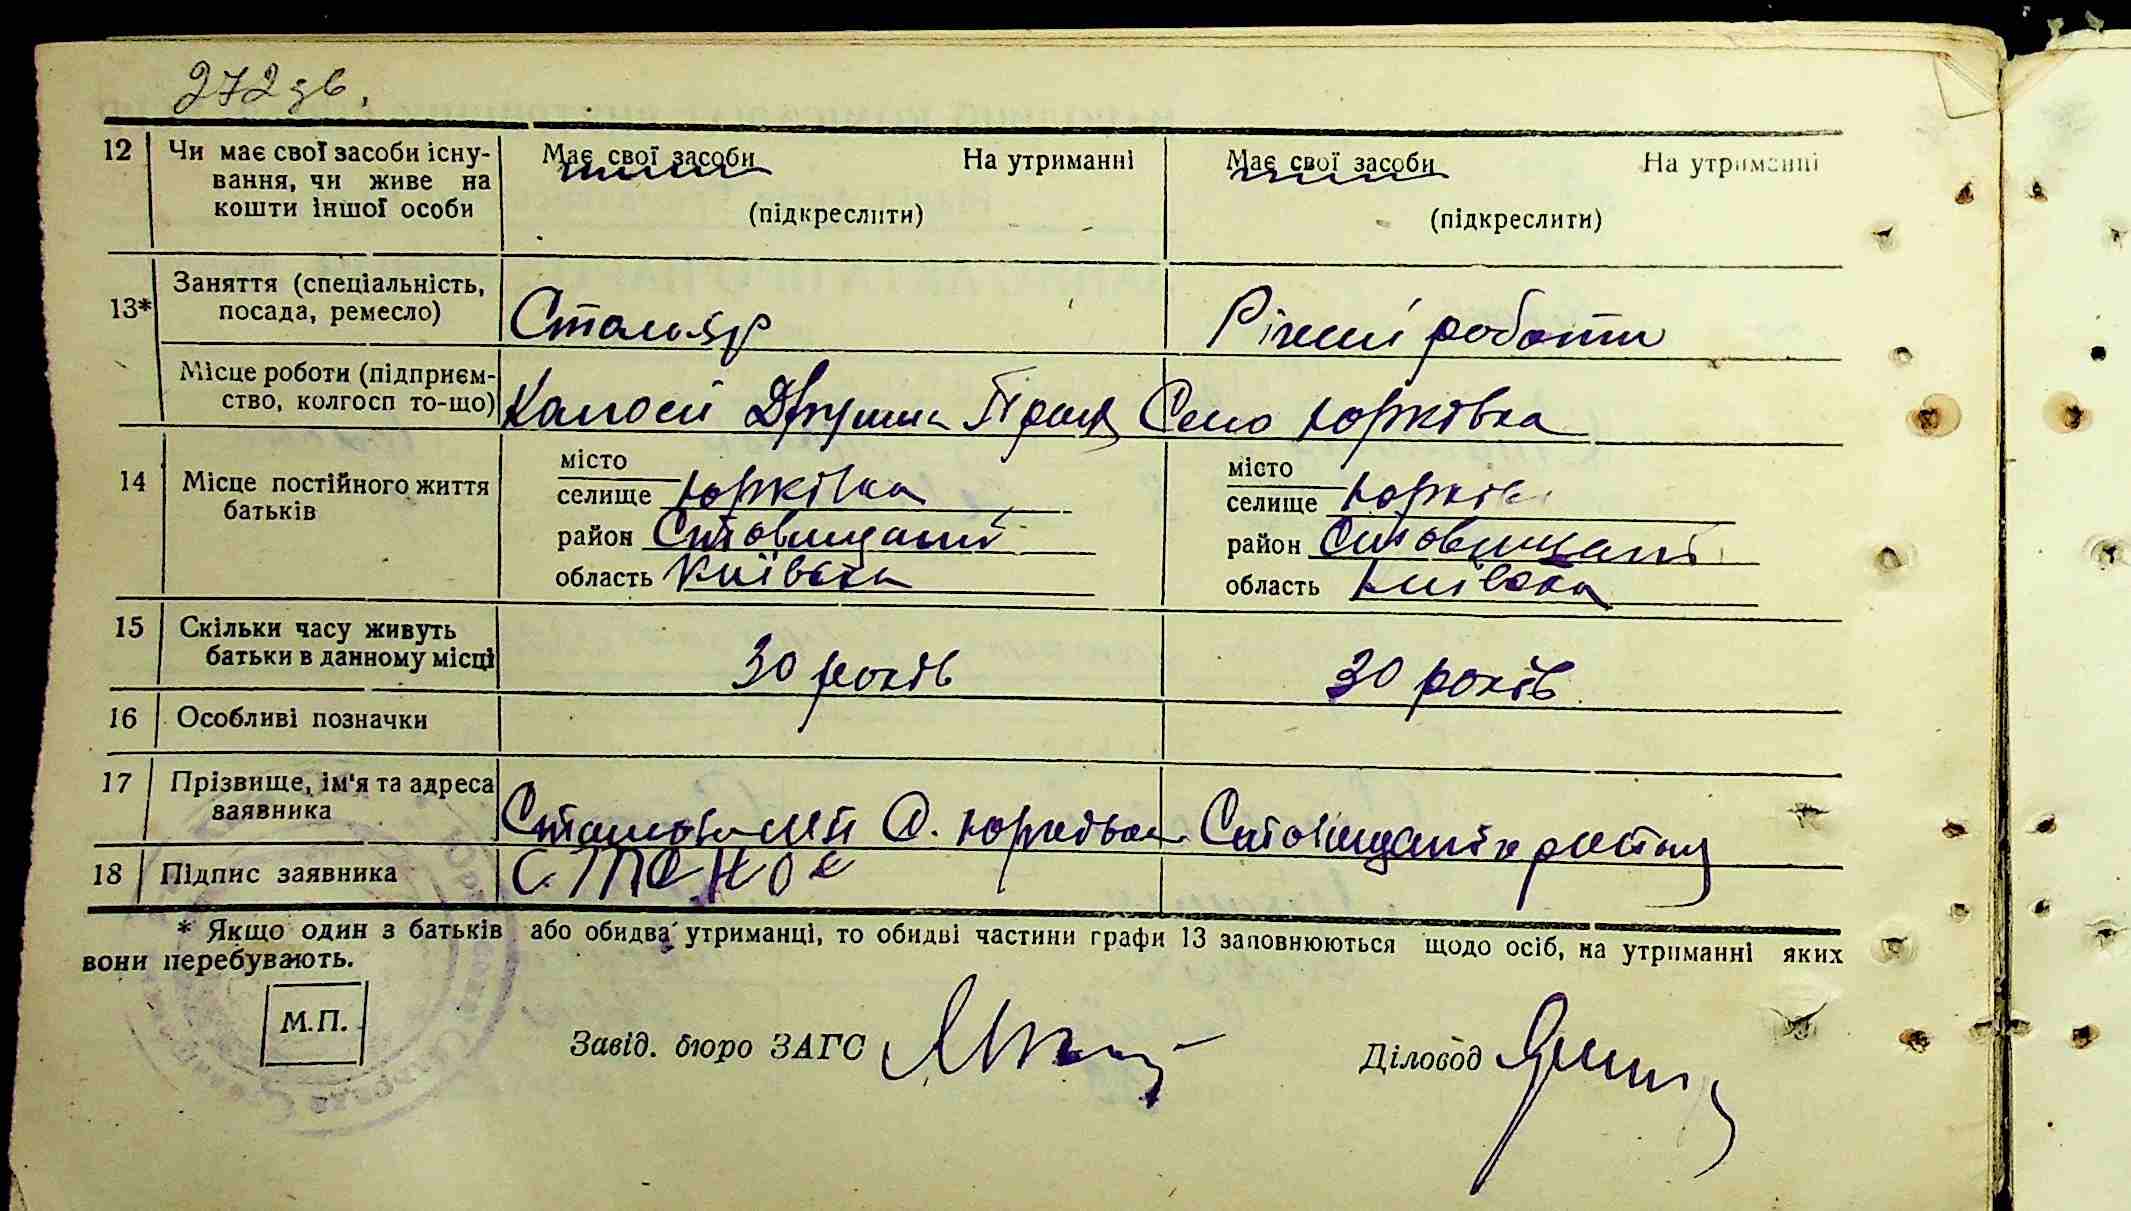 272 зв.
12 Чи має свої засоби існу- Має свої засоби На утриманні Має свої засоби На утриманні
вання, чи живе на
кошти іншої особи (підкреслити) (підкреслити)
13* Заняття (спеціальність,
посада, ремесло) Столяр Різни роботи
Місце роботи (підприєм-
ство, колгосп то-що) Дружна Праця Село Юрківка
14 Місце постійного життя
батьків
місто місто
селище Юрківка селище Юрків
район район
область Київска область Київска
15 Скільки часу живуть
батьки в данному місці 30 років 30 років
16 Особливі позначки
17 Прізвище, ім'я та адреса
заявника
18 Підпис заявника Станов
* Якщо один з батьків або обидва утриманці, то обидві частини графи 13 заповнюються щодо осіб, на утриманні яких
вони перебувають.
М.П.
Завід. бюро ЗАГС Діловод